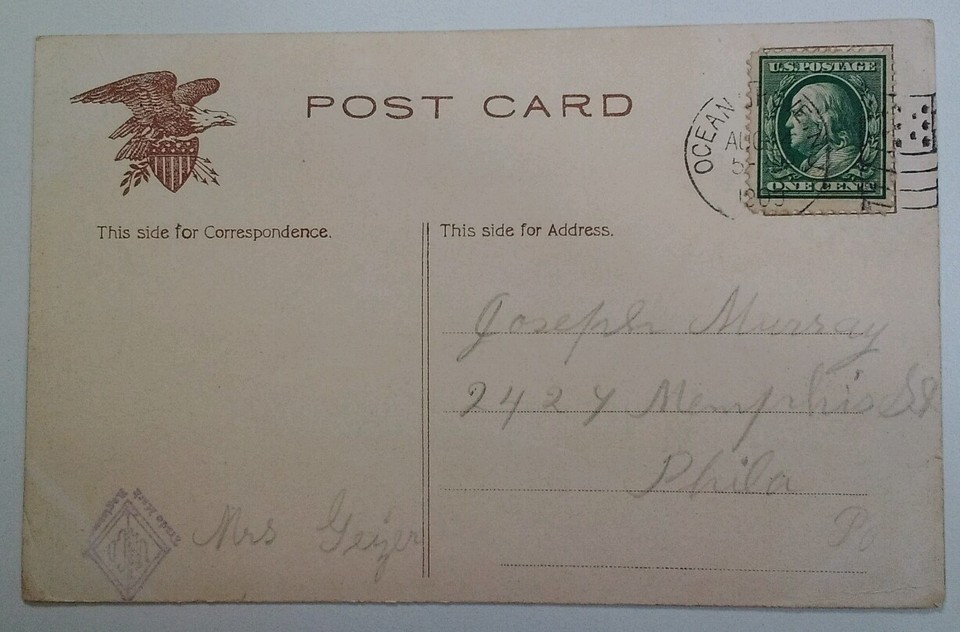 POST CARD
U.S. POSTAGE
ONE CENT
OCEAN
AUG
5
1909
This side for Correspondence.
This side for Address.
Joseph Murray
2424 Memphis St
Phila
Pa
Mrs Geyer
Trade Mark